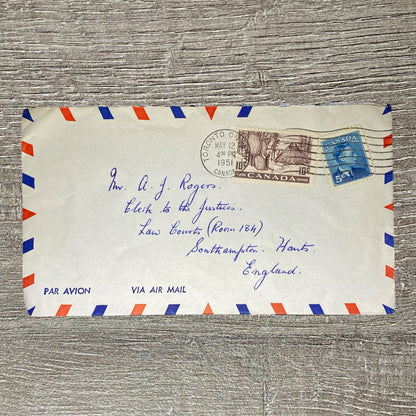 TORONTO
MAY 12
4 PM
1951
CANADA
10¢ 10¢
CANADA
CANADA
5
Mr. A. J. Rogers.
Clerk to the Justices.
Law Courts (Room 184)
Southampton. Hants
England.
PAR AVION VIA AIR MAIL